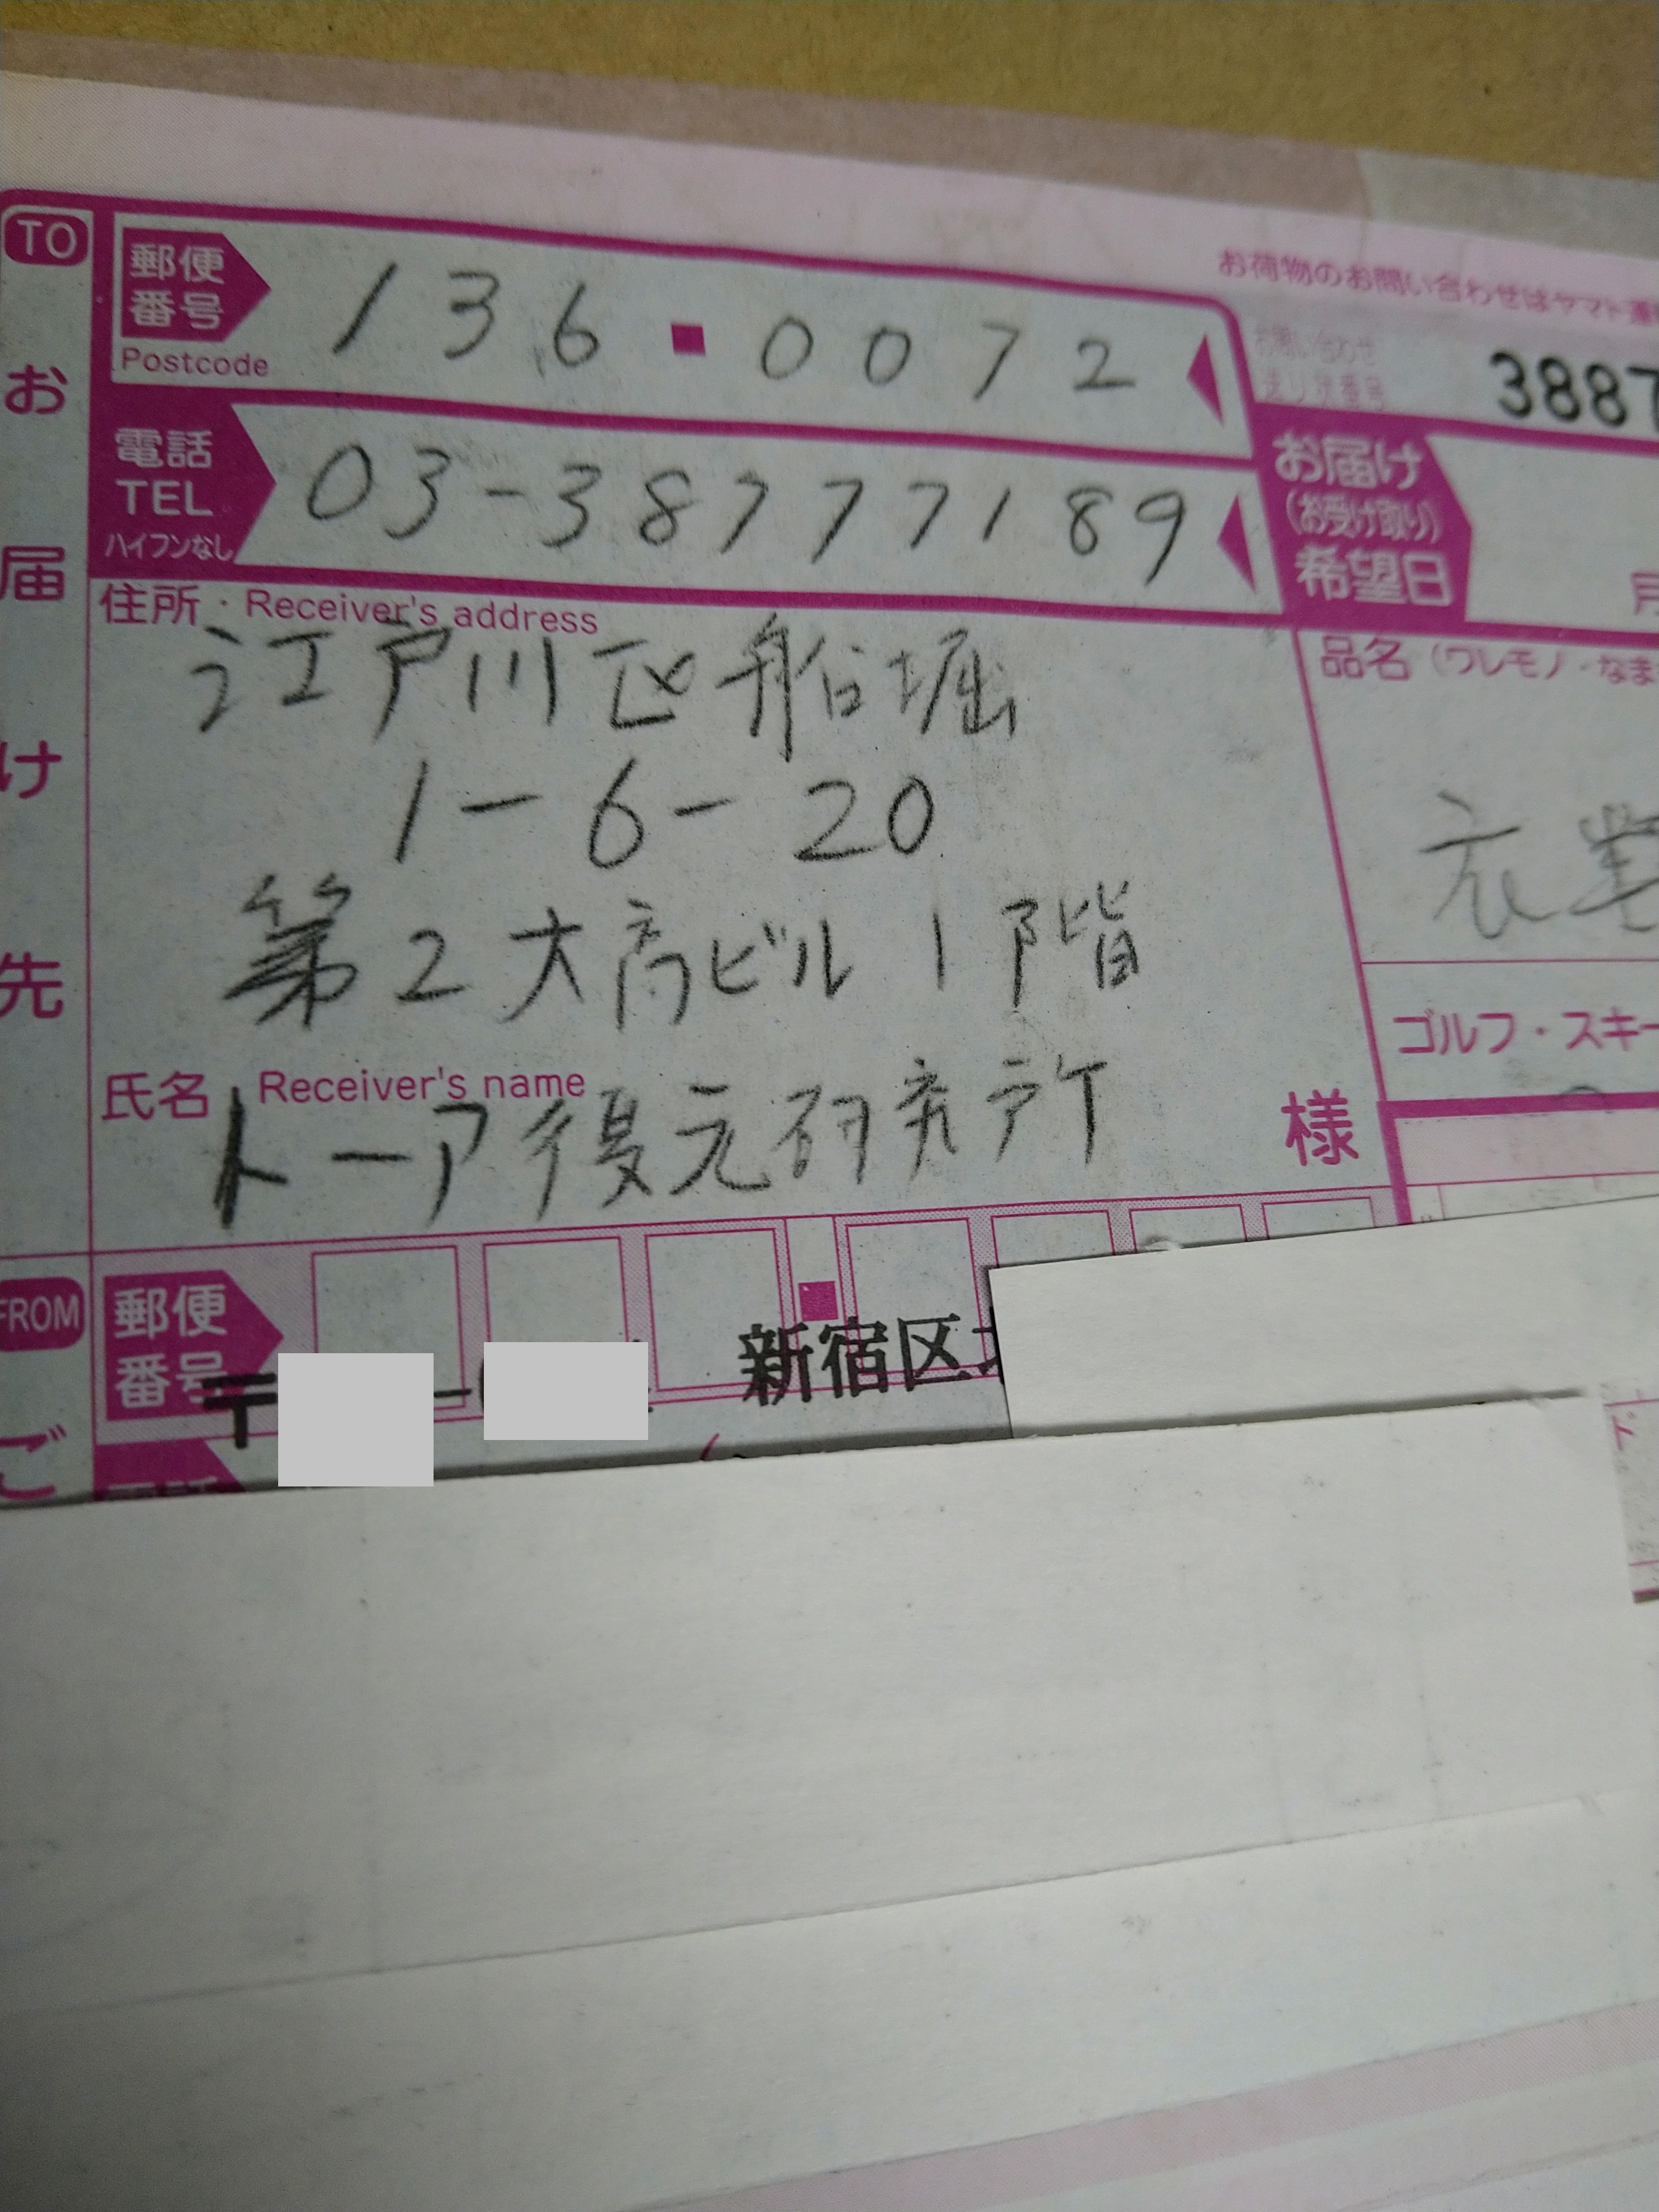 お荷物のお問い合わせはヤマト運
TO
お届け先
郵便番号
Postcode
136 0072
お問い合わせ
送り状番号
3887
電話
TEL
ハイフンなし
03-38777189
お届け
(お受け取り)
希望日
月
住所・Receiver's address
江戸川区船堀
1-6-20
第2大高ビル1階
品名(ワレモノ・なま
衣類
ゴルフ・スキー
氏名 Receiver's name
トーア復元研究所
様
FROM
ご
郵便番号
〒
新宿区